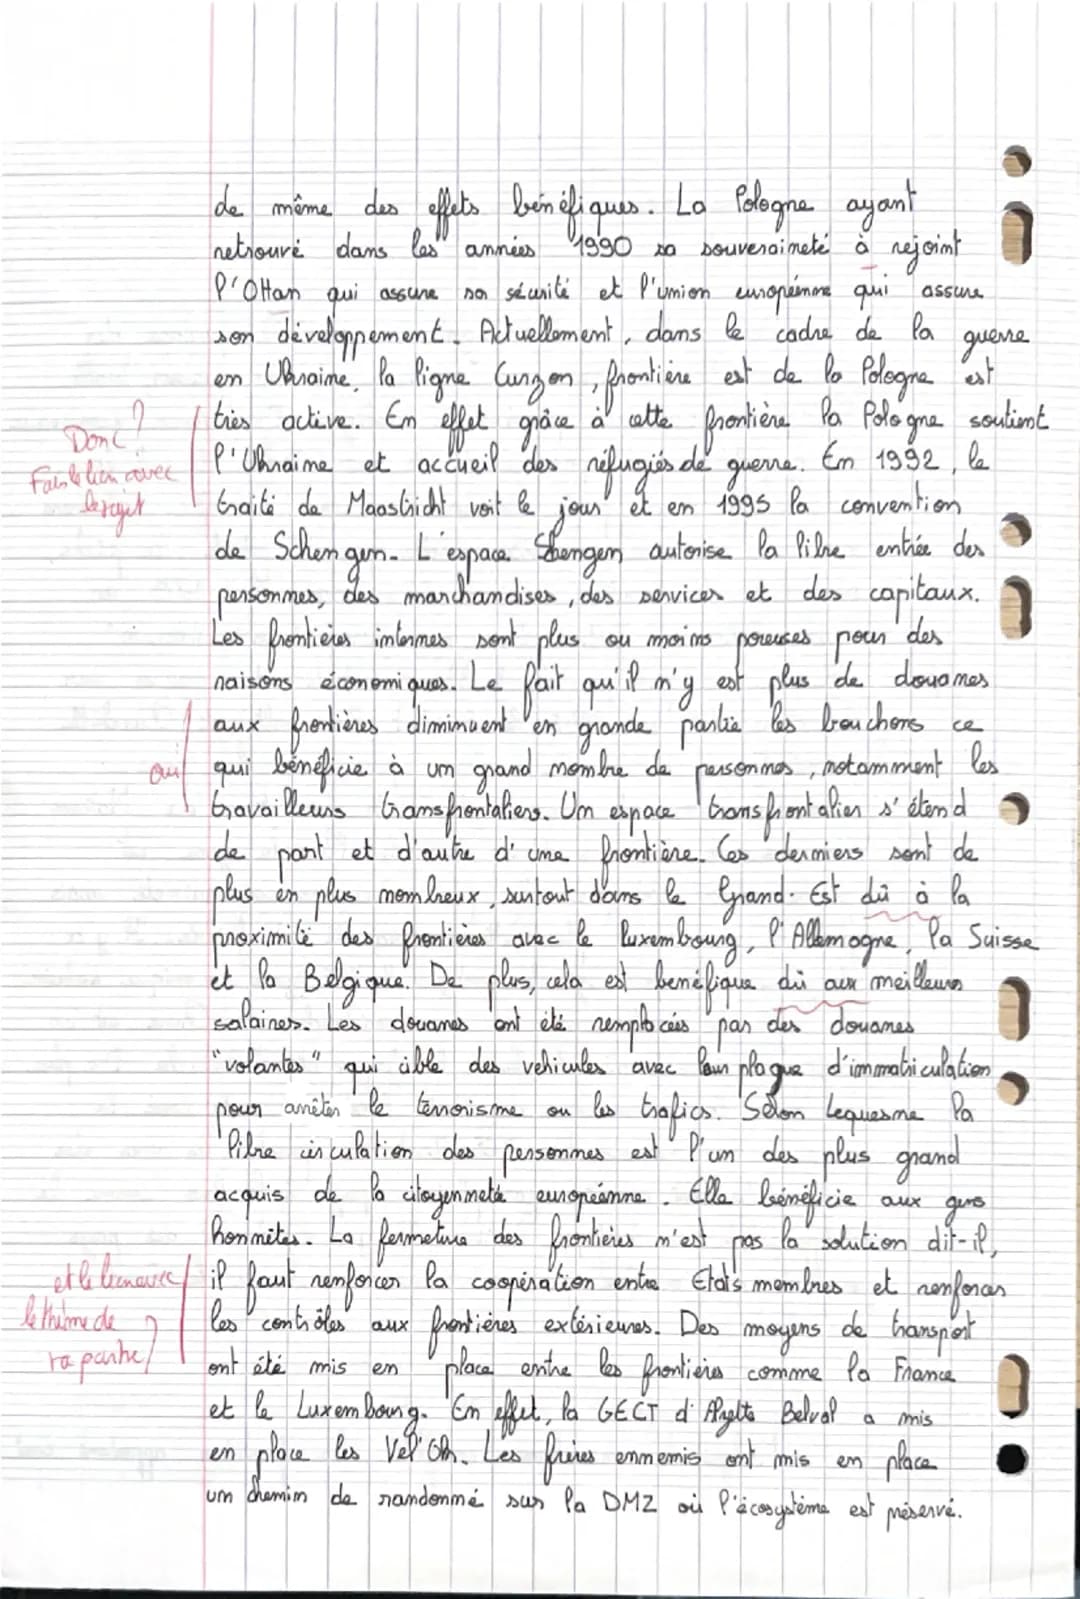 de même des effets bénéfiques. La Pologne ayant
retrouvé dans les années 1990 sa souveraineté à rejoint
l'Ottan qui assure sa sécurité et l'union européenne qui assure
son développement. Actuellement, dans le cadre de la guerre
en Ukraine, la ligne Curzon, frontière est de la Pologne est
très active. En effet grâce à cette frontière la Pologne soutient
Donc ?
Fais le lien avec
le sujet
l'Ukraine et accueil des réfugiés de guerre. En 1992, le
traité de Maastricht voit le jour et en 1995 la convention
de Schengen. L'espace Shengen autorise la libre entrée des
personnes, des marchandises, des services et des capitaux.
Les frontières internes sont plus ou moins poreuses pour des
raisons économiques. Le fait qu'il n'y est plus de douanes
aux frontières diminuent en grande partie les bouchons ce
oui
qui bénéficie à un grand nombre de personnes, notamment les
travailleurs transfrontaliers. Un espace transfrontalier s'étend
de part et d'autre d'une frontière. Ces derniers sont de
plus en plus nombreux, surtout dans le Grand-Est dû à la
proximité des frontières avec le luxembourg, l'Allemagne, la Suisse
et la Belgique. De plus, cela est benéfique dû aux meilleurs
salaires. Les douanes ont été remplacées par des douanes
"volantes" qui cible des vehicules avec leur plaque d'immatriculation
pour arrêter le terrorisme ou les trafics. Selon Lequesne la
libre circulation des personnes est l'un des plus grand
acquis de la citoyenneté européenne. Elle bénéficie aux gens
honnêtes. La fermeture des frontières n'est pas la solution dit-il,
et le lien avec
le thème de
ta partie ?
il faut renforcer la coopération entre Etats membres et renforcer
les contrôles aux frontières extérieures. Des moyens de transport
ont été mis en place entre les frontières comme la France
et le Luxembourg. En effet, la GECT d'Alzette Belval a mis
en place les Vel'Ok. Les frères ennemis ont mis en place
un chemin de randonné sur la DMZ où l'écosystème est préservé.